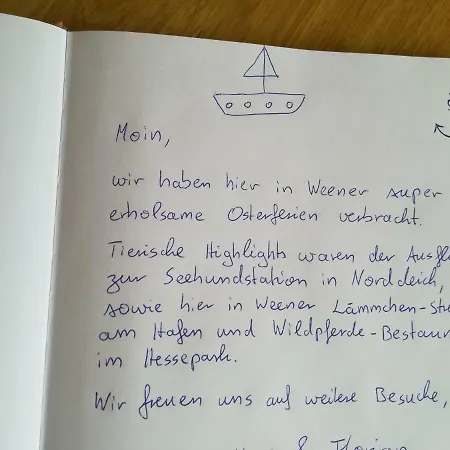 Moin,
wir haben hier in Weener super
erholsame Osterferien verbracht.
Tierische Highlights waren der
zur Seehundstation in Norddeich,
sowie hier in Weener
am Hafen und
im Hessepark.
Wir freuen uns auf weitere Besuche,
&